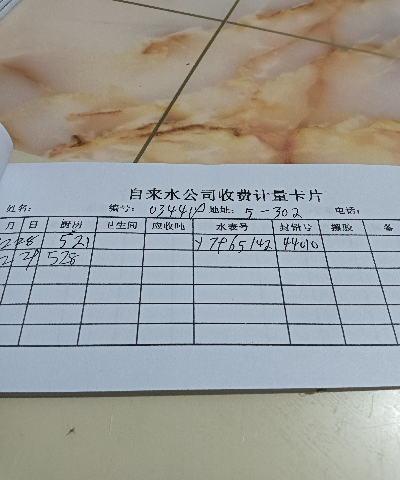 自来水公司收费计量卡片
姓名: 编号: 03440 地址: 5-302 电话:
月 日 厨房 卫生间 应收吨 水表号 封铅号 撞胶 备
28 521 Y7965142 44010
528